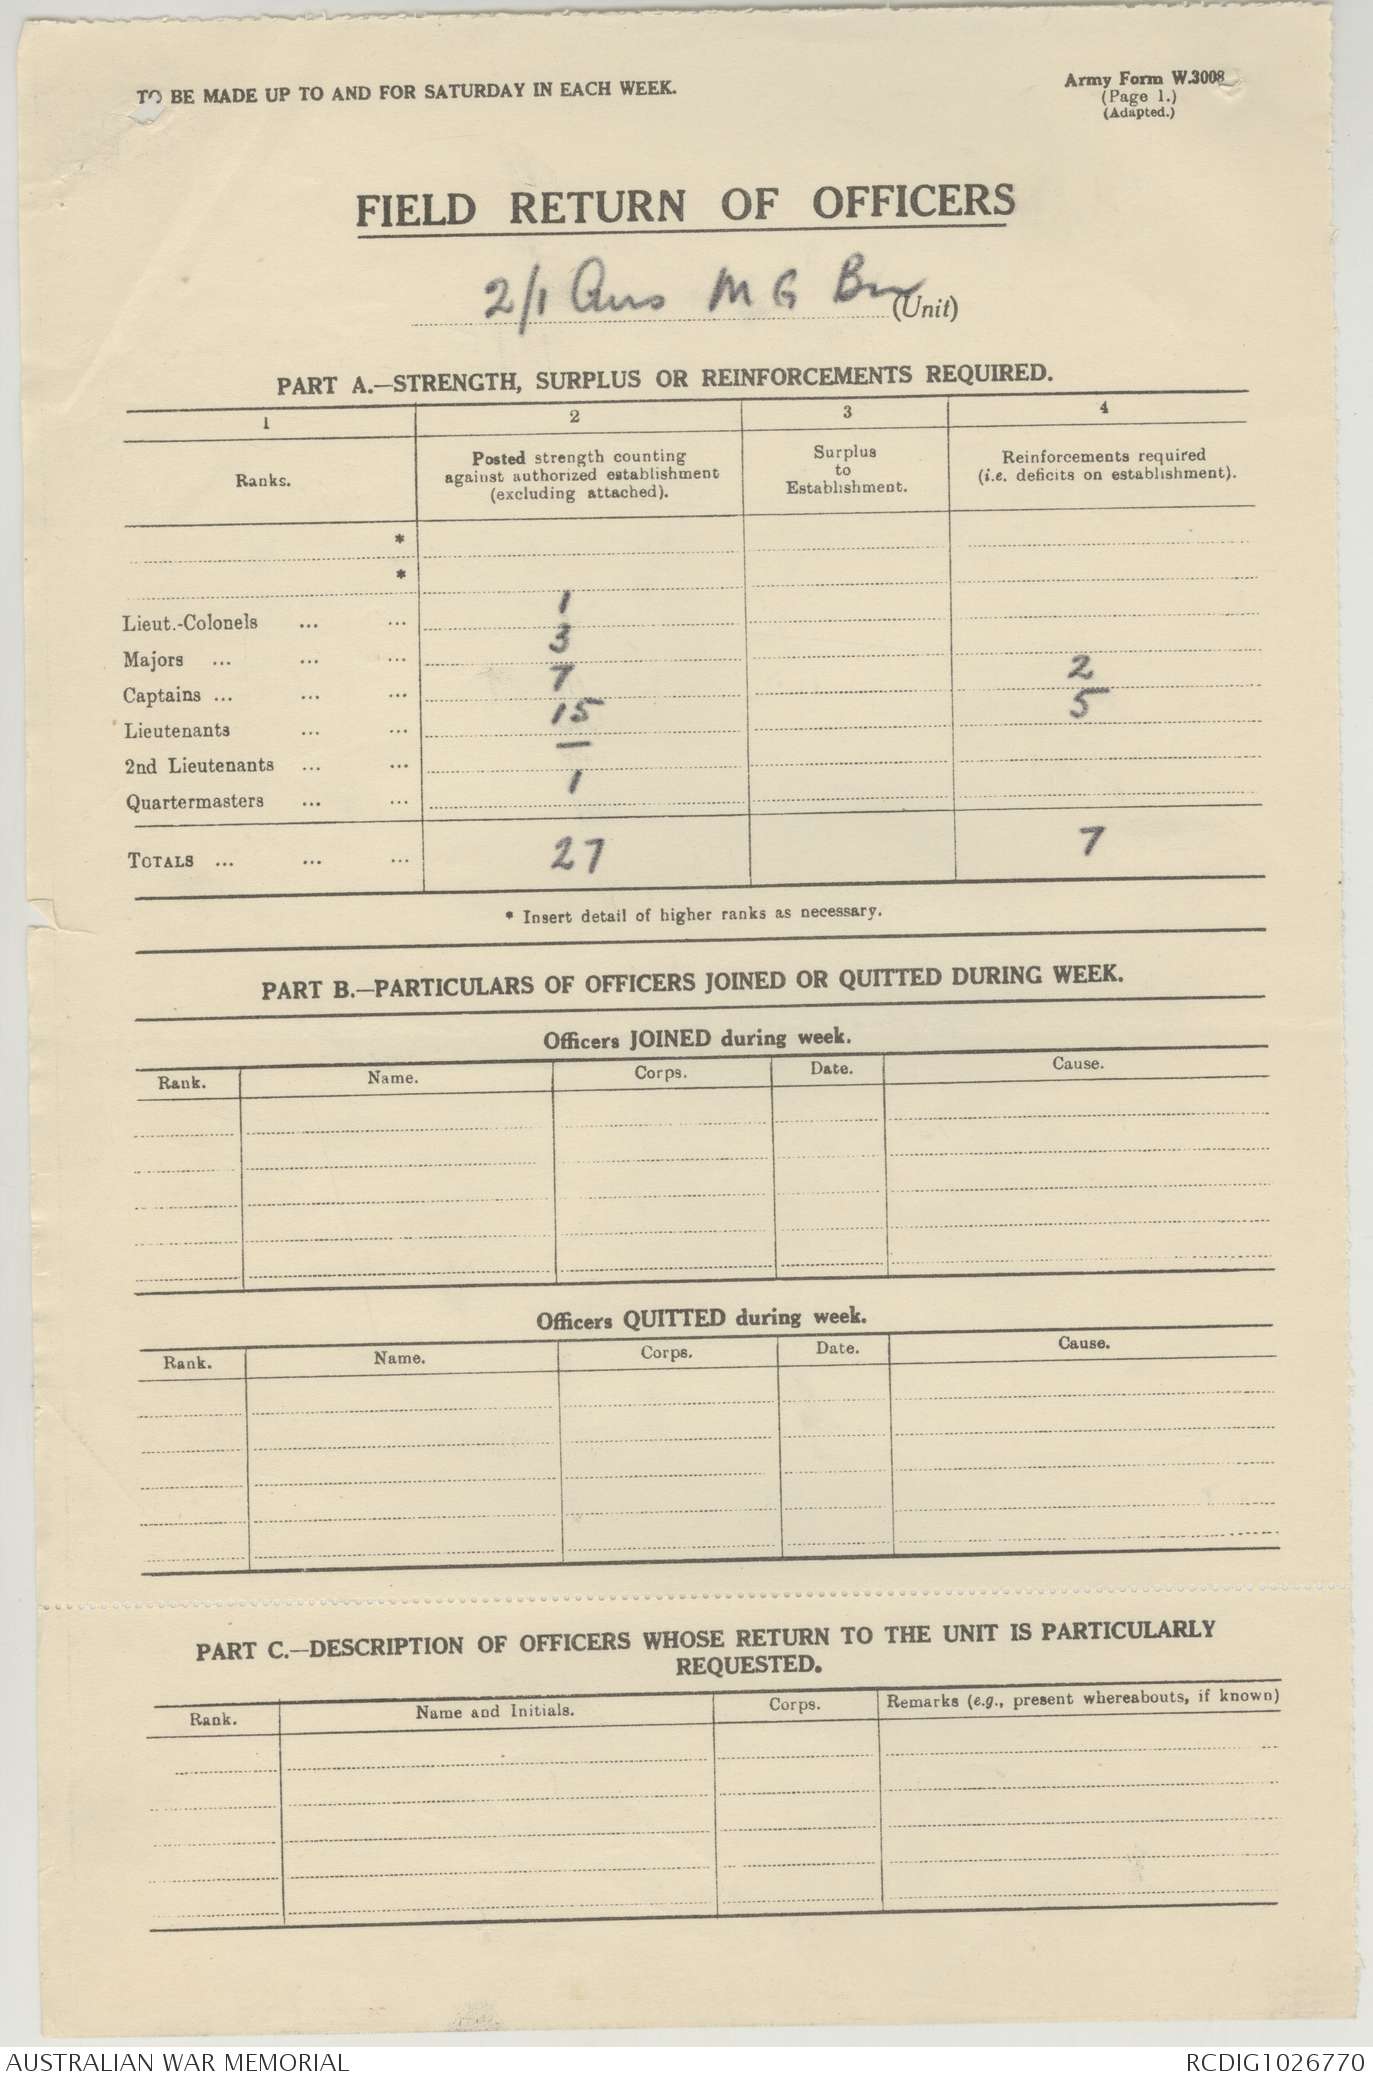 TO BE MADE UP TO AND FOR SATURDAY IN EACH WEEK.
Army Form W.3008
(Page 1.)
(Adapted.)
FIELD RETURN OF OFFICERS
2/1 Aus M G Bn (Unit)
PART A.—STRENGTH, SURPLUS OR REINFORCEMENTS REQUIRED.
1 2 3 4
Ranks. Posted strength counting against authorized establishment (excluding attached). Surplus to Establishment. Reinforcements required (i.e. deficits on establishment).
*
*
Lieut.-Colonels ... ... 1
Majors ... ... ... 3
Captains ... ... ... 7 2
Lieutenants ... ... 15 5
2nd Lieutenants ... ... —
Quartermasters ... ... 1
TOTALS ... ... ... 27 7
* Insert detail of higher ranks as necessary.
PART B.—PARTICULARS OF OFFICERS JOINED OR QUITTED DURING WEEK.
Officers JOINED during week.
Rank. Name. Corps. Date. Cause.
Officers QUITTED during week.
Rank. Name. Corps. Date. Cause.
PART C.—DESCRIPTION OF OFFICERS WHOSE RETURN TO THE UNIT IS PARTICULARLY
REQUESTED.
Rank. Name and Initials. Corps. Remarks (e.g., present whereabouts, if known)
AUSTRALIAN WAR MEMORIAL RCDIG1026770